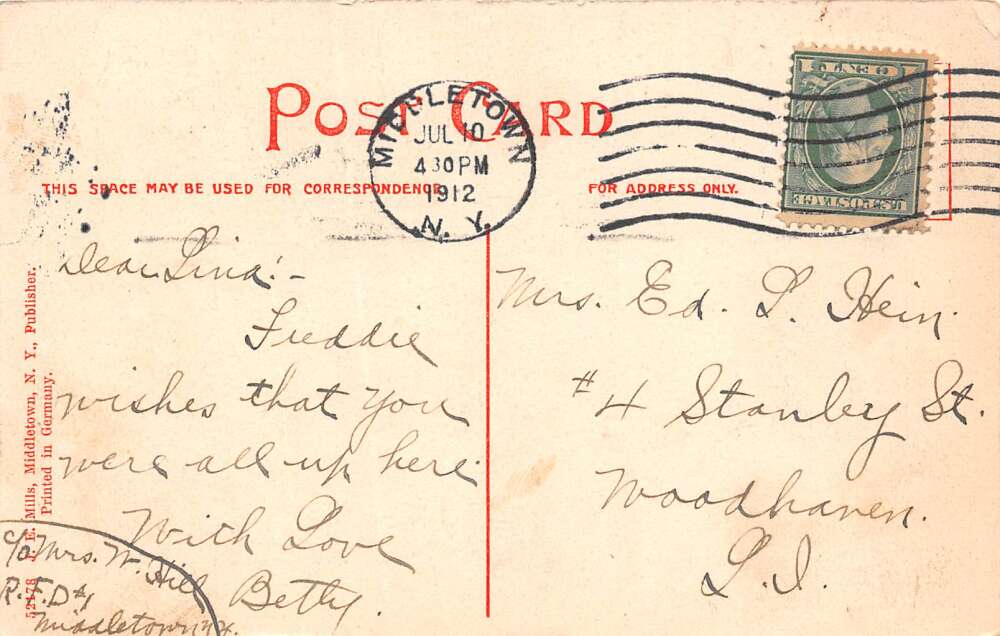 POST CARD
MIDDLETOWN
JUL 10
4 30 PM
1912
N. Y.
U.S. POSTAGE
1 CENT 1
THIS SPACE MAY BE USED FOR CORRESPONDENCE
FOR ADDRESS ONLY.
Dear Lina:-
Freddie
wishes that you
were all up here.
With Love
Betty.
c/o Mrs. W. Hill
R.F.D #1
Middletown N.Y.
Mrs. Ed. L. Hein.
#4 Stanley St.
Woodhaven.
L.I.
52178 J. E. Mills, Middletown, N. Y., Publisher.
Printed in Germany.